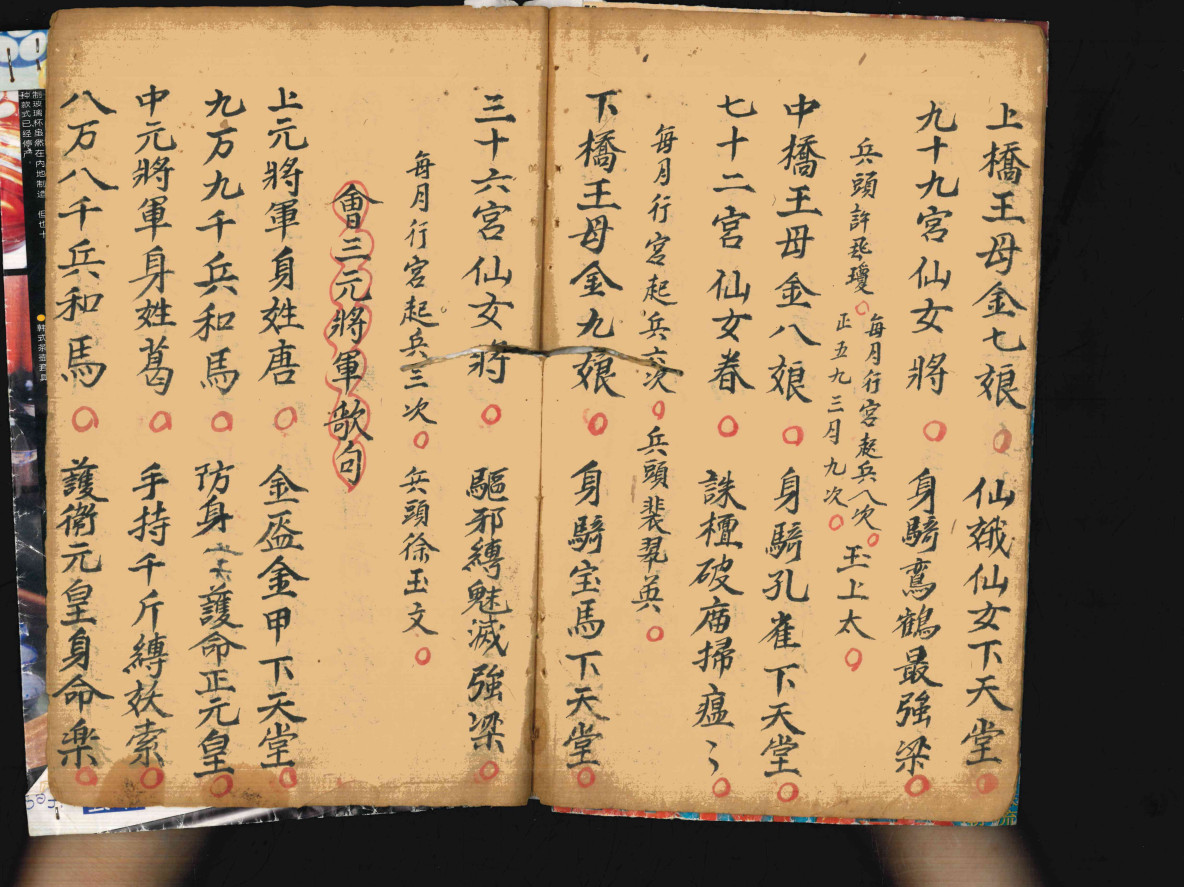 上橋王母金七娘 仙娥仙女下天堂
九十九宮仙女將 身騎鸞鶴最强梁
兵頭許飛瓊 每月行宮起兵八次
正五九三月九次 玉上太
中橋王母金八娘 身騎孔雀下天堂
七十二宮仙女眷 誅壇破庙掃瘟〻
每月行宮起兵六次 兵頭裴翠英
下橋王母金九娘 身騎宝馬下天堂
三十六宮仙女將 驅邪縛魅滅強梁
每月行宮起兵三次 兵頭徐玉文
會三元將軍歌句
上元將軍身姓唐 金盔金甲下天堂
九万九千兵和馬 防身護命正元皇
中元將軍身姓葛 手持千斤縛妖索
八万八千兵和馬 護衛元皇身命樂
制玻璃杯虽然在内地制造
种款式已经停产
韩式茶壶套具